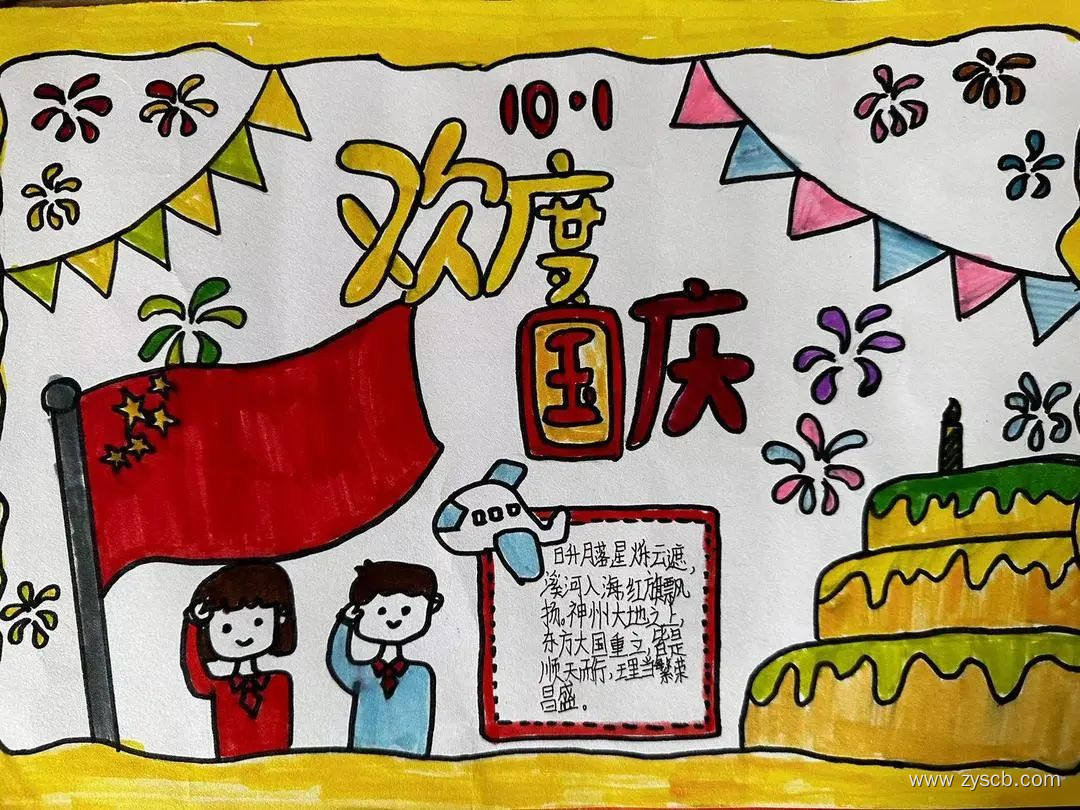 10·1
欢度
国庆
日升月落星烁云遮,
溪河入海,红旗飘
扬。神州大地之上,
东方大国重立,皆是
顺天而行,理当繁荣
昌盛。
www.zyscb.com